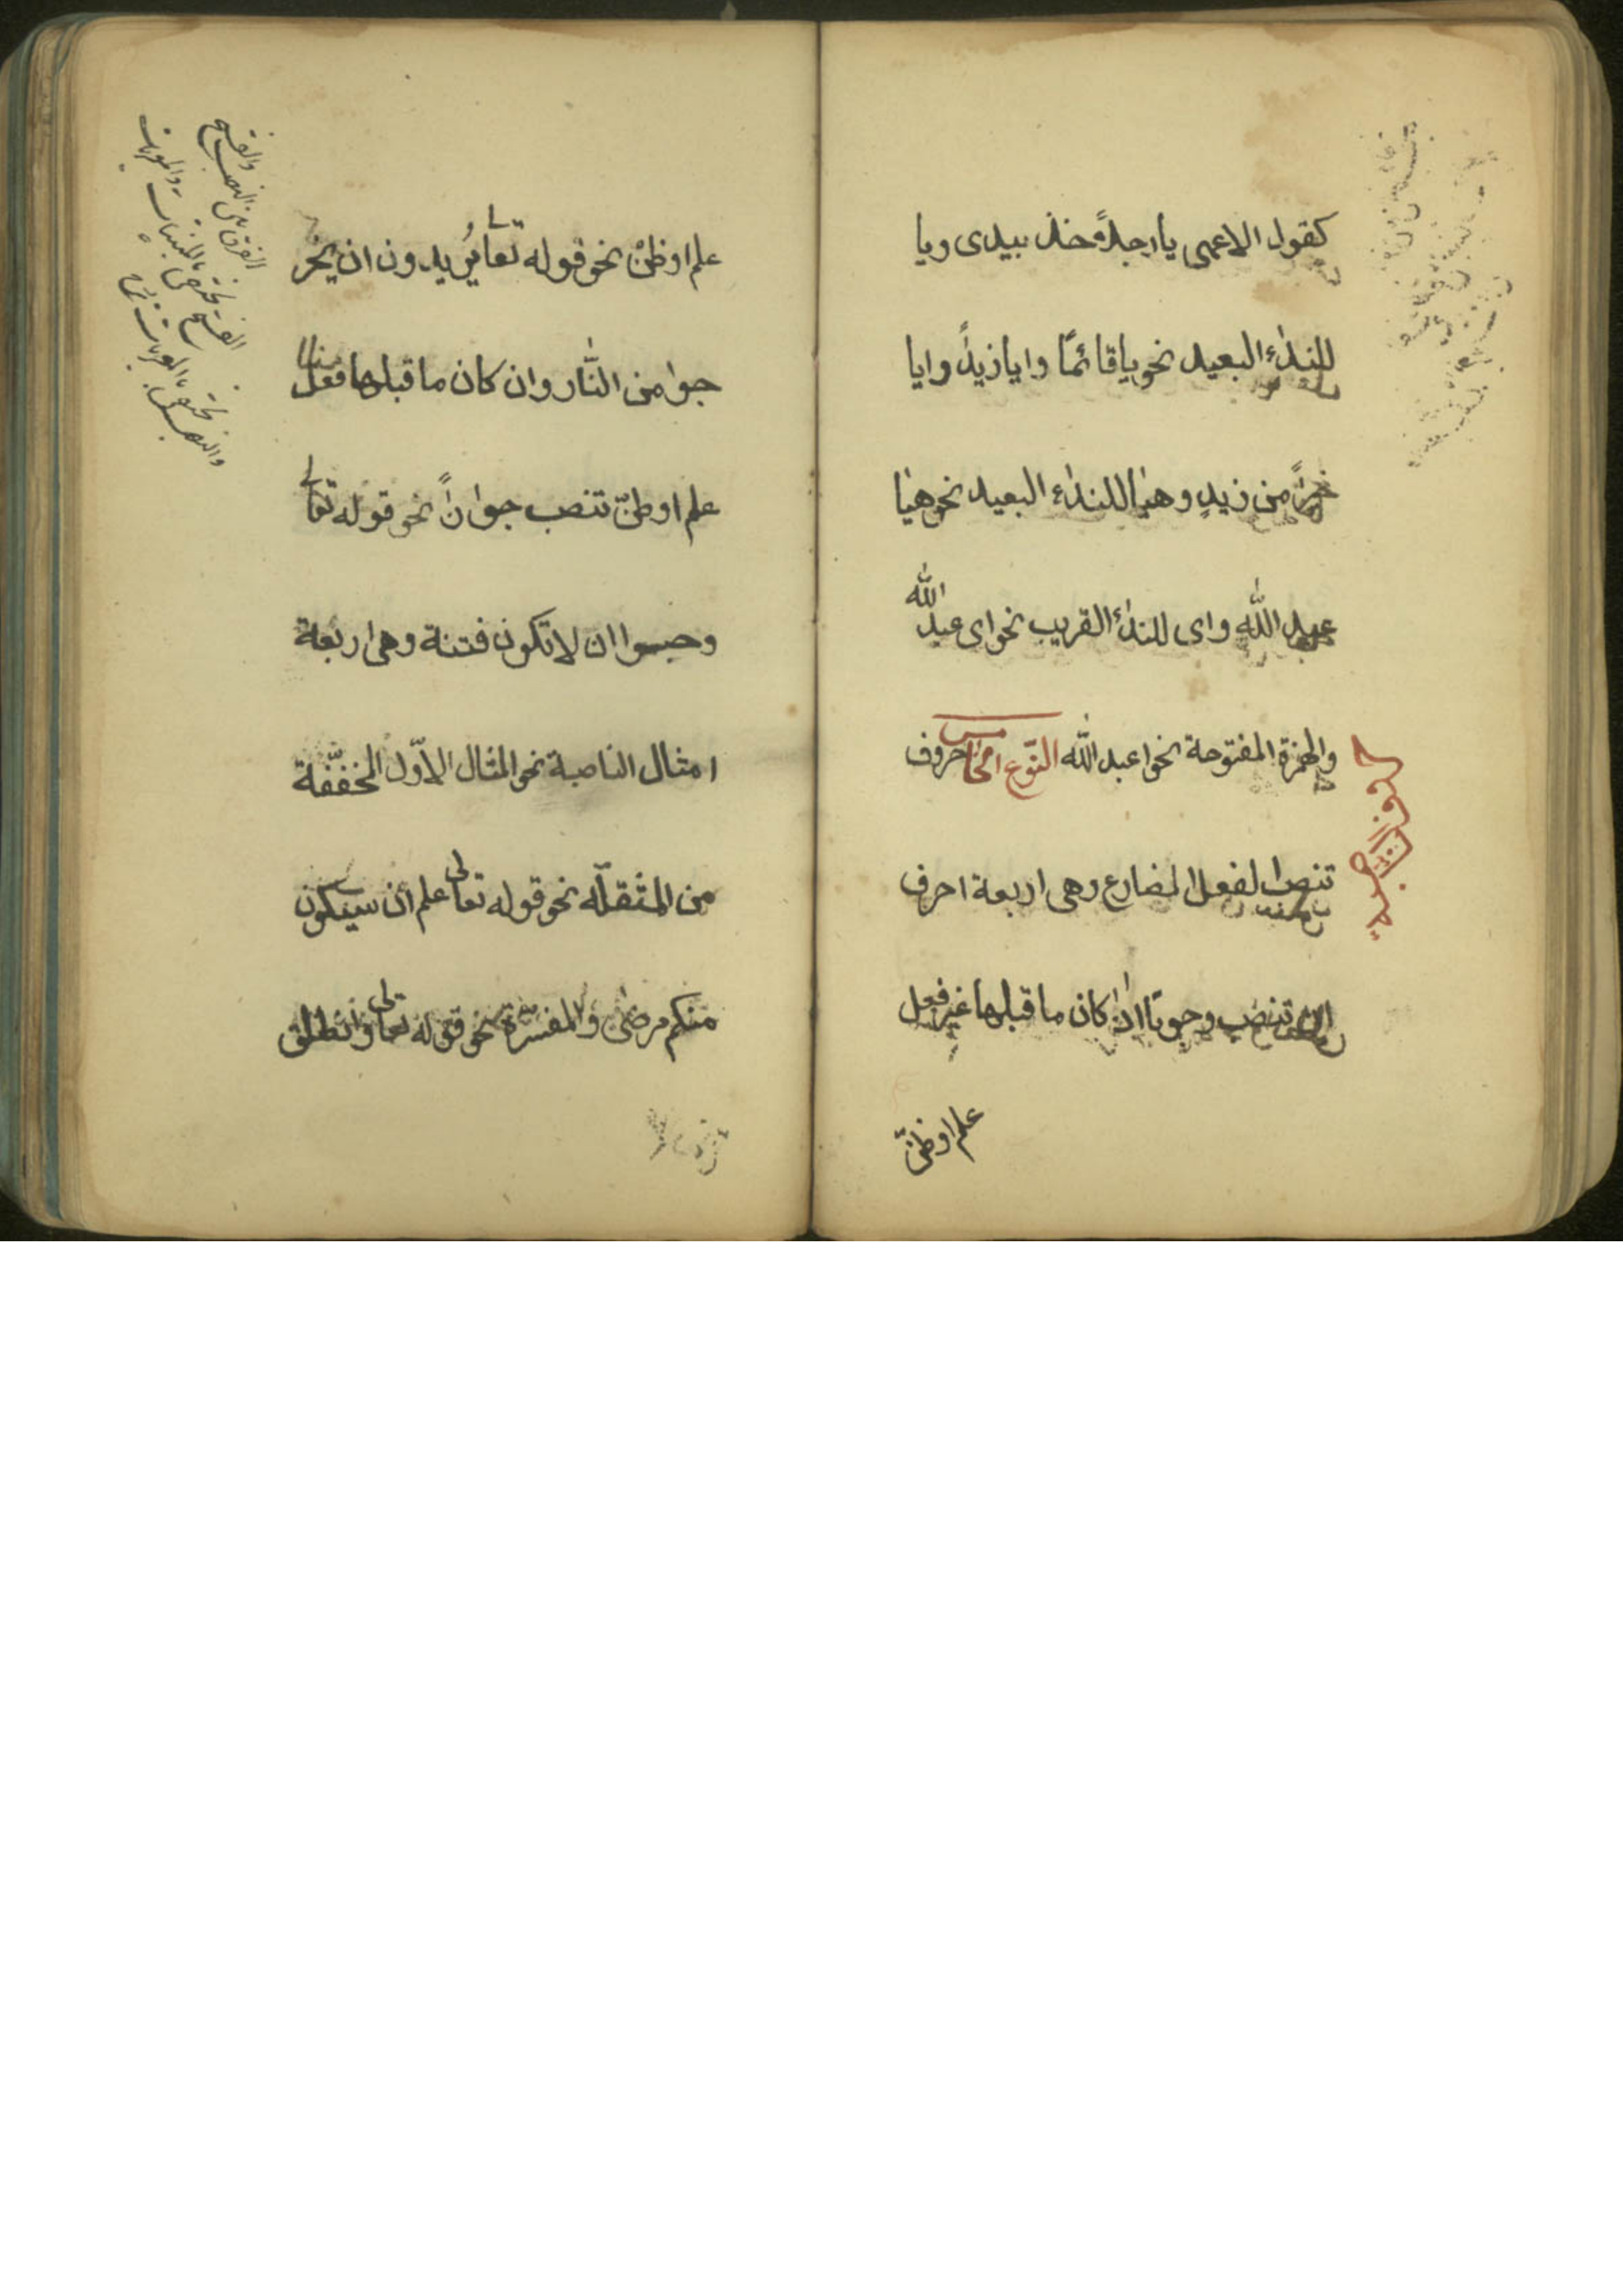 كقول الاعمى يا رجلاً خذ بيدى ويا
للنداء البعيد نحو ياقائمًا وايا زيداً وايا
خيراً من زيدٍ وهيا للنداء البعيد نحو هيا
عبد الله واى للنداء القريب نحو اى عبد الله
والهمزة المفتوحة نحو اعبد الله النّوع الخامس حروف
تنصب الفعل المضارع وهى اربعة احرف
ان تنصب وجوبًا اذا كان ما قبلها غير فعل
علم او ظنّ
علم او ظنّ نحو قوله تعالى يُريدون ان يخر
جوا من النّار وان كان ما قبلها فعل
علم او ظنّ تنصب جوازاً نحو قوله تعالى
وحسبوا ان لا تكون فتنة وهى اربعة
امثال الناصبة نحو المثال الاوّل المخففّة
من المثقلّه نحو قوله تعالى علم ان سيكون
منكم مرضى والمفسّرة نحو قوله تعالى وانطلق
والفتح
الفرق بين النصب